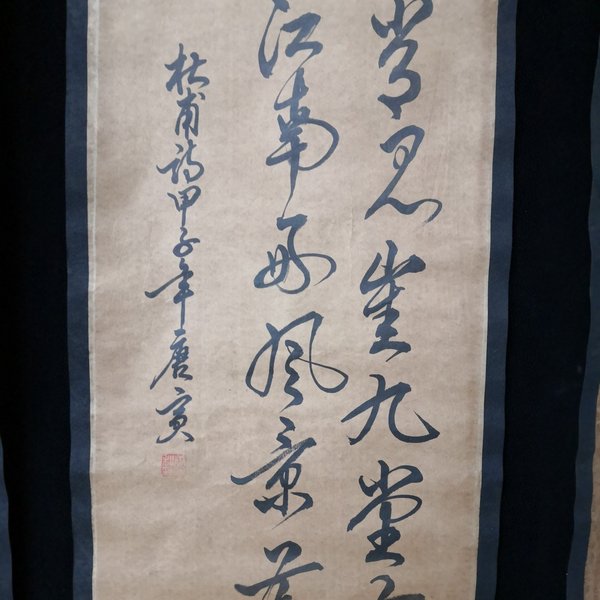 常见崔九堂
江南好风景
杜甫诗甲子年唐寅